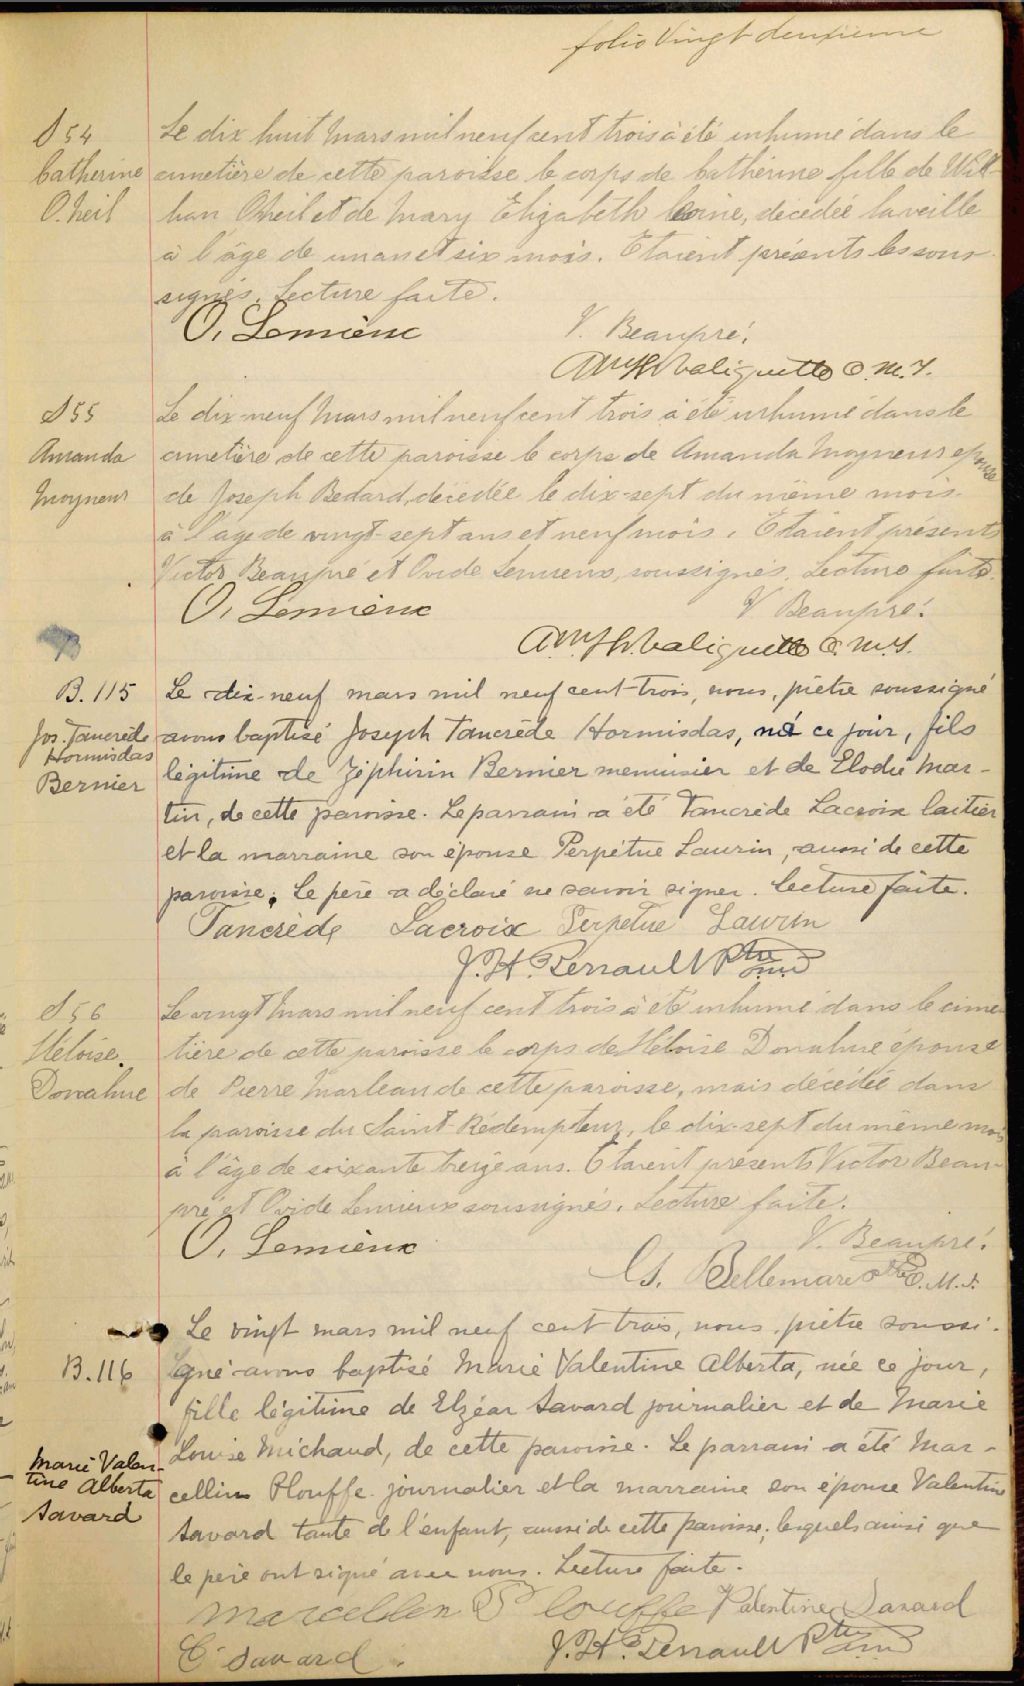 folio Vingt deuxième
S 54
Catherine
O.Neil
Le dix huit Mars mil neuf cent trois à été inhumé dans le
cimetière de cette paroisse le corps de Cathérine fille de Will-
ham O'Neil et de Mary Elizabeth, décédée la veille
à l'âge de un an et six mois. Etaient présents les sous-
signés. Lecture faite.
O. Lemieux V. Beaupré.
Valiquette O.M.I.
S 55
Amanda
Moyneur
Le dix-neuf Mars mil neuf cent trois à été inhumé dans le
cimetière de cette paroisse le corps de Amanda Moyneur epouse
de Joseph Bedard, décédée le dix-sept du même mois
à l'âge de vingt-sept ans et neuf mois. Etaient présents
Victor Beaupré et Ovide Lemieux, soussignés. Lecture faite.
O. Lemieux V Beaupré.
Valiquette O.M.I.
B. 115
Jos. Tancrède
Hormisdas
Bernier
Le dix-neuf mars mil neuf cent-trois, nous, prêtre soussigné
avons baptisé Joseph Tancrède Hormisdas, né ce jour, fils
légitime de Zéphirin Bernier menuisier et de Elodie Mar-
tin, de cette paroisse. Le parrain a été Tancrède Lacroix laitier
et la marraine son épouse Perpétue Laurin, aussi de cette
paroisse. Le père a déclaré ne savoir signer. Lecture faite.
Tancrède Lacroix Perpetue Laurin
J.H. Perrault Ptre
S 56
Héloïse
Donahue
Le vingt Mars mil neuf cent trois à été inhumé dans le cime-
tière de cette paroisse le corps de Héloise Donahue épouse
de Pierre Marleau de cette paroisse, mais décédée dans
la paroisse du Saint-Rédempteur, le dix-sept du même mois
à l'âge de soixante treize ans. Etaient présents Victor Beau-
pré et Ovide Lemieux soussignés. Lecture faite.
O. Lemieux V. Beaupré.
Bellemare O.M.I.
B. 116
Marie Valen-
tine Alberta
Savard
Le vingt mars mil neuf cent trois, nous, prêtre soussi-
gné avons baptisé Marie Valentine Alberta, née ce jour,
fille légitime de Elzéar Savard journalier et de Marie
Louise Michaud, de cette paroisse. Le parrain a été Mar-
cellin Plouffe journalier et la marraine son épouse Valentine
Savard tante de l'enfant, aussi de cette paroisse; lesquels ainsi que
le père ont signé avec nous. Lecture faite.
Marcellen Plouffe Valentine Savard
E Savard. J.H. Perrault Ptre